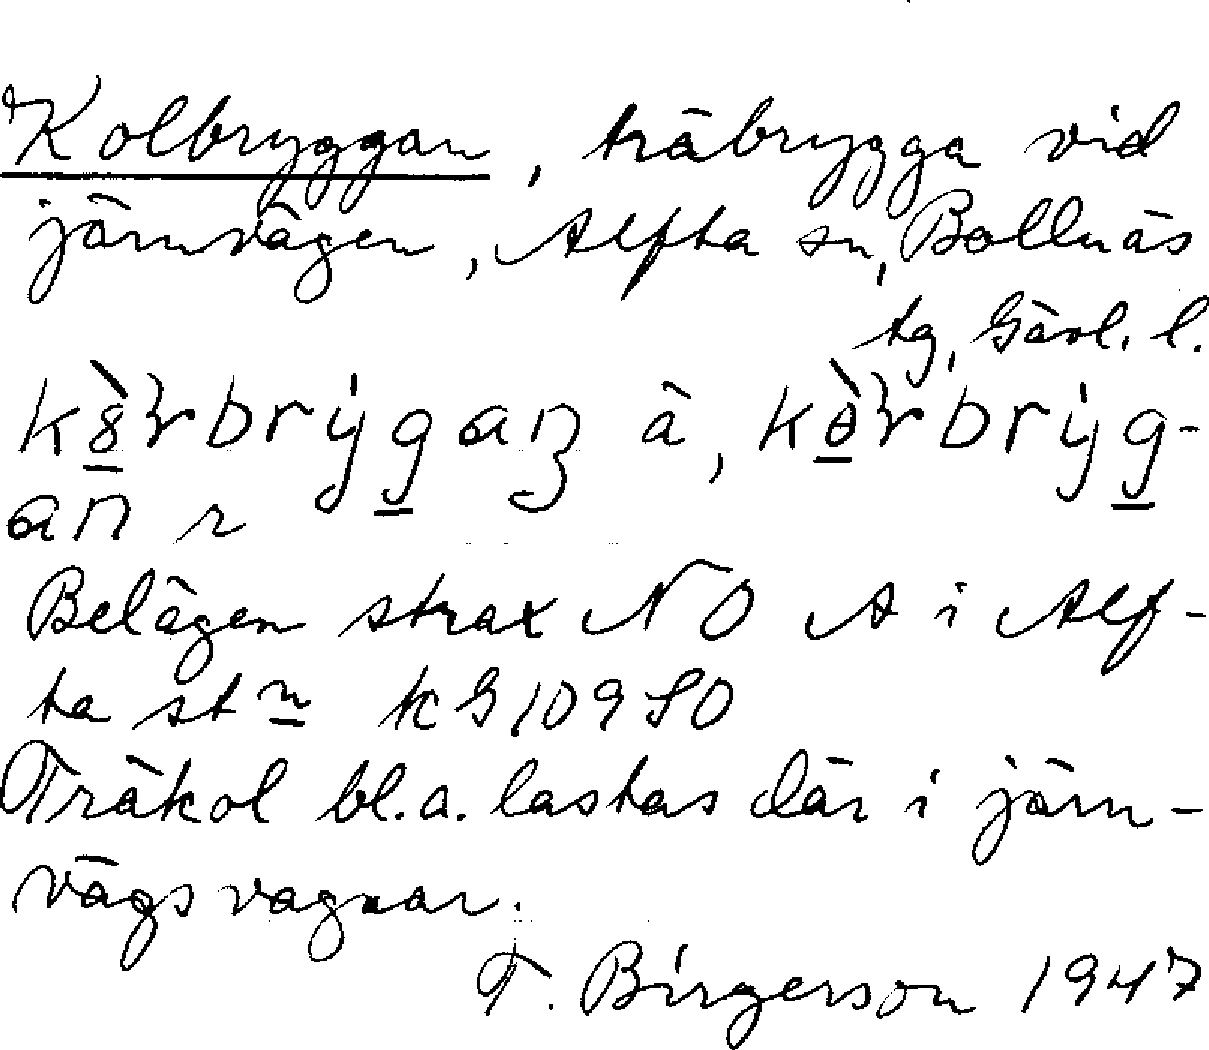 Kolbryggan, träbrygga vid
järnvägen, Alfta sn, Bollnäs
tg, Gävl. l.
an r
Belägen strax NO A i Alf-
ta stn kG 10980
Träkol bl.a. lastas där i järn-
vägsvagnar.
T. Birgerson 1947